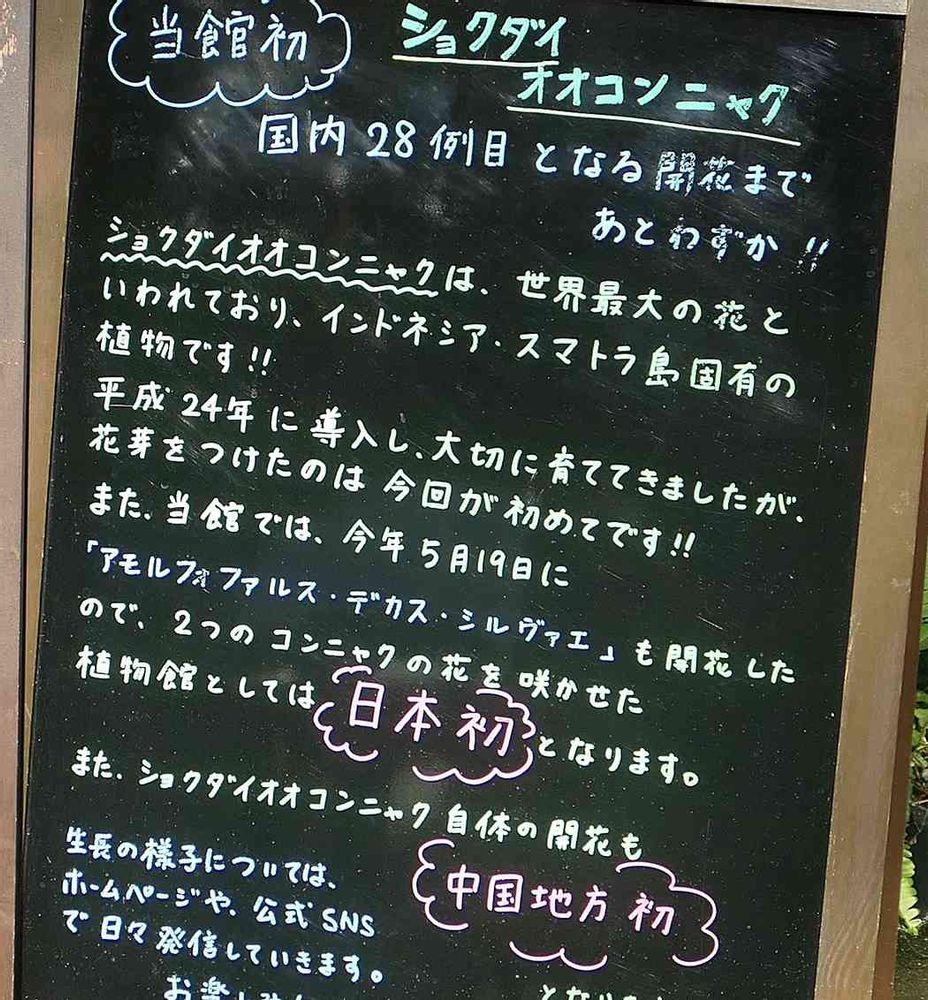 当館初
ショクダイ
オオコンニャク
国内28例目となる開花まで
あとわずか!!
ショクダイオオコンニャクは、世界最大の花と
いわれており、インドネシア・スマトラ島固有の
植物です!!
平成24年に導入し、大切に育ててきましたが、
花芽をつけたのは今回が初めてです!!
また、当館では、今年5月19日に
「アモルフォファルス・デカス・シルヴァエ」も開花した
ので、2つのコンニャクの花を咲かせた
植物館としては日本初となります。
また、ショクダイオオコンニャク自体の開花も
中国地方初
生長の様子については、
ホームページや、公式SNS
で日々発信していきます。